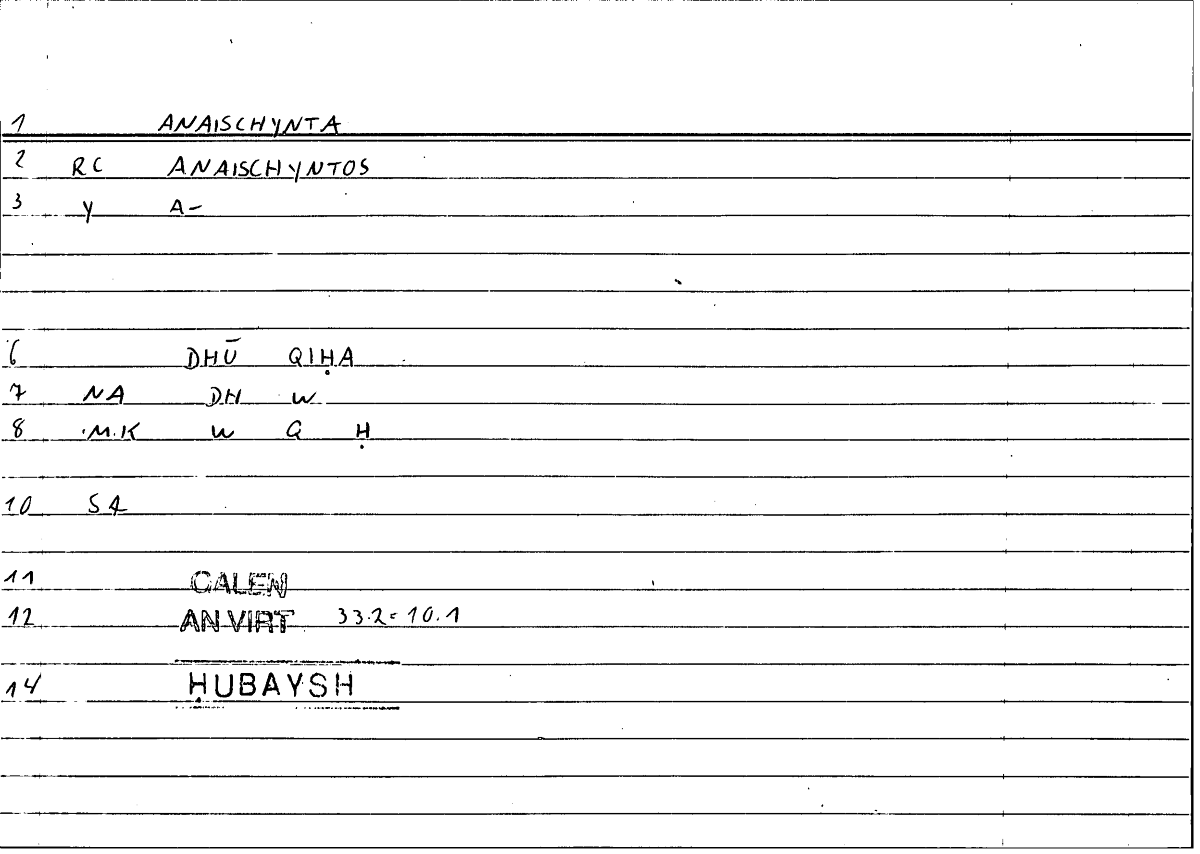 1 ANAISCHYNTA
2 RC ANAISCHYNTOS
3 Y A-
6 DHŪ QIḤA
7 NA DH W
8 .M.K W Q Ḥ
10 SA
11 GALEN
12 AN VIRT 33.2 = 10.1
14 ḤUBAYSH